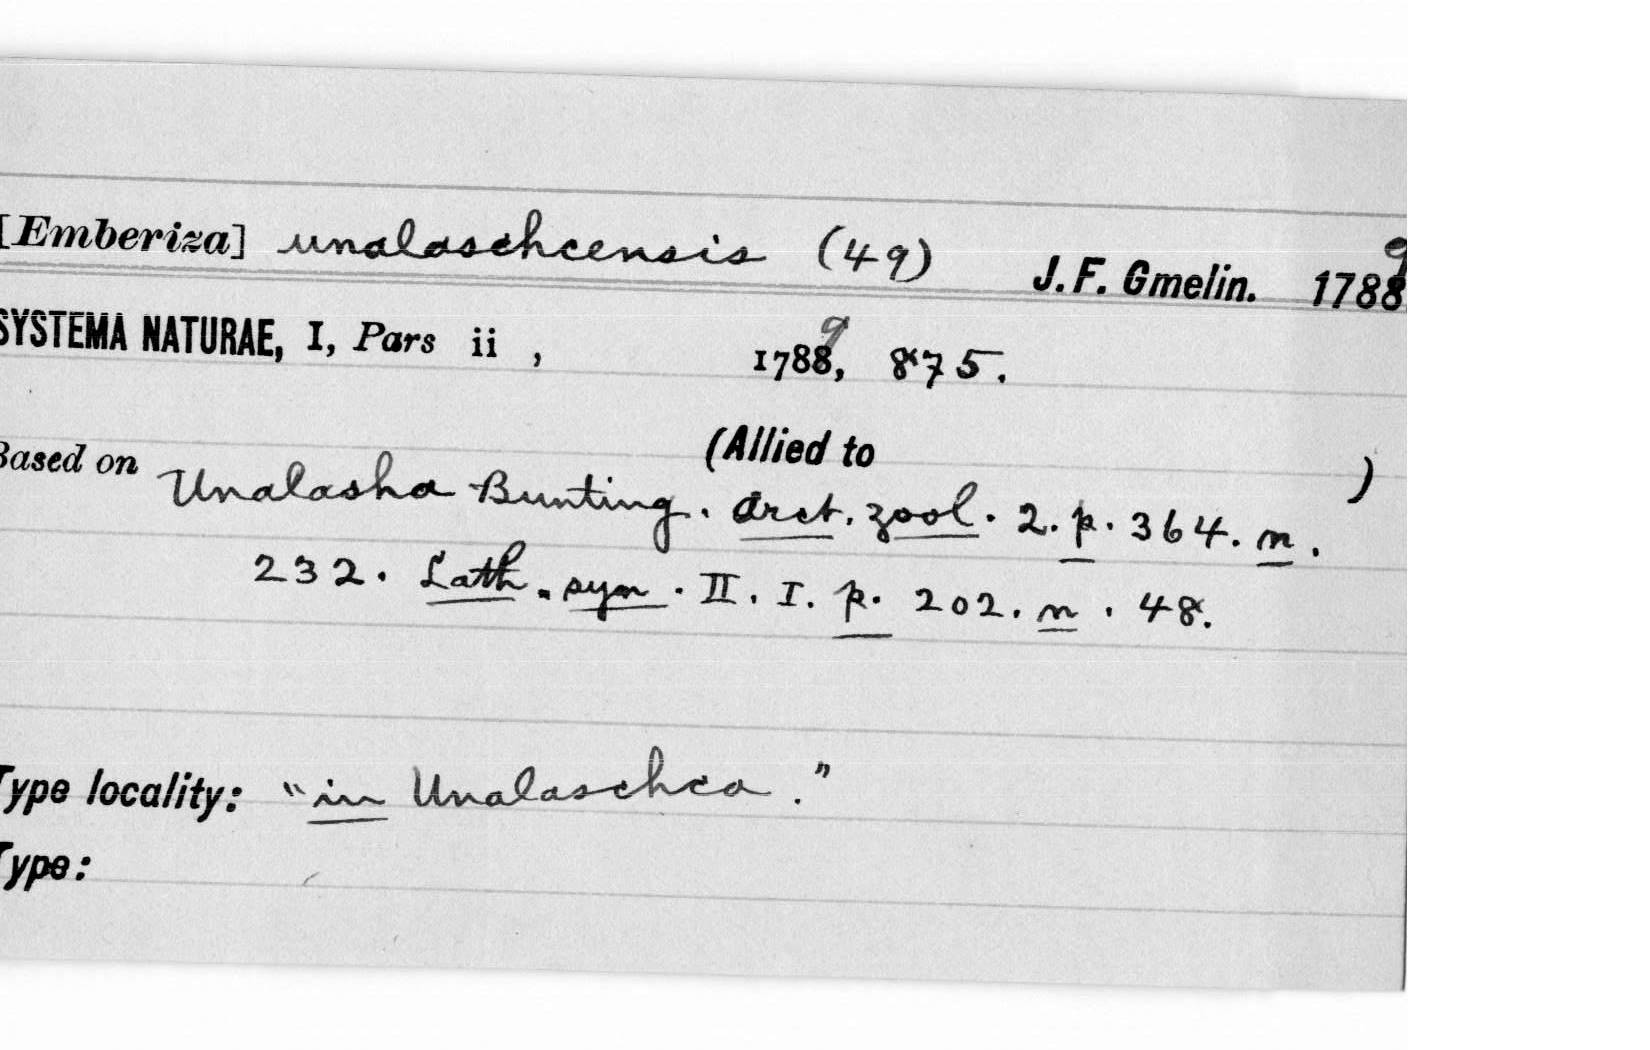 [Emberiza] unalaschcensis (49) J. F. Gmelin. 1788 9
SYSTEMA NATURAE, I, Pars ii , 1788, 9 875.
(Allied to )
Based on Unalasha Bunting. Arct. zool. 2. p. 364. n.
232. Lath. syn. II. I. p. 202. n. 48.
Type locality: "in Unalaschca."
Type: